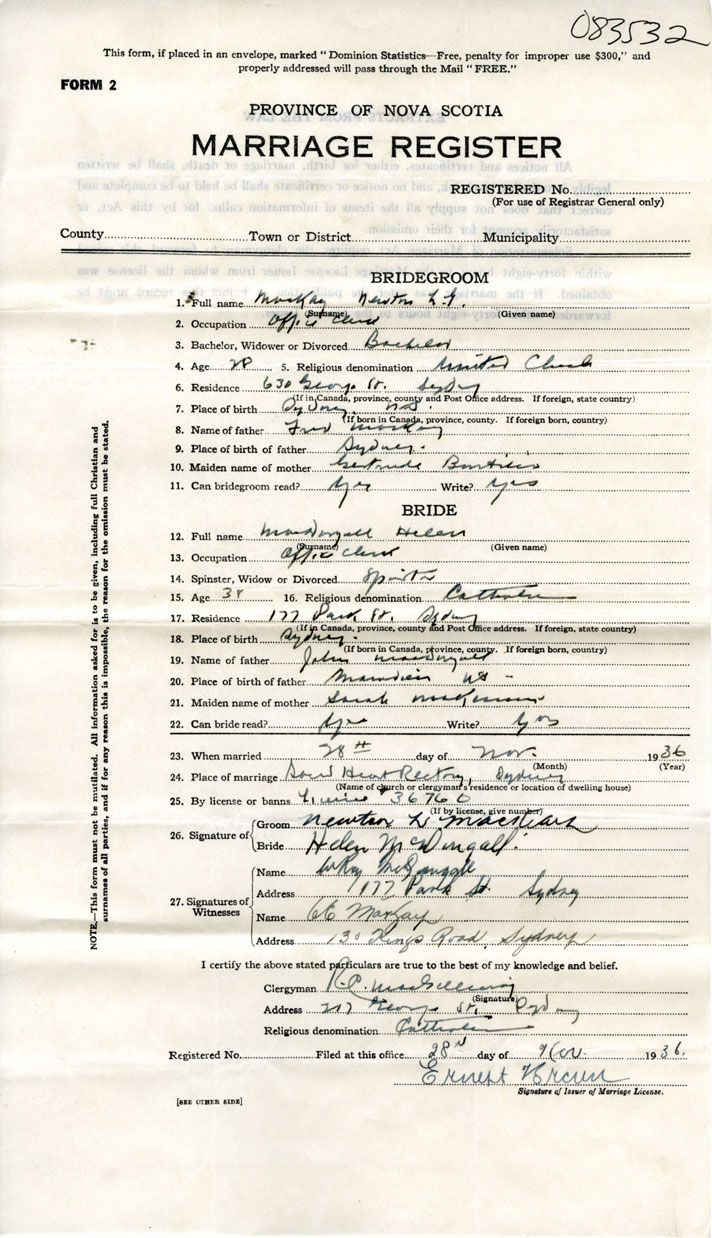 083532
This form, if placed in an envelope, marked "Dominion Statistics—Free, penalty for improper use $300," and
properly addressed will pass through the Mail "FREE."
FORM 2
PROVINCE OF NOVA SCOTIA
MARRIAGE REGISTER
REGISTERED No.
(For use of Registrar General only)
County Town or District Municipality
BRIDEGROOM
1. Full name MacKay Newton
(Surname) (Given name)
2. Occupation Office Clerk
3. Bachelor, Widower or Divorced Bachelor
4. Age 28 5. Religious denomination United Church
6. Residence 630 George St. Sydney
(If in Canada, province, county and Post Office address. If foreign, state country)
7. Place of birth Sydney N.S.
(If born in Canada, province, county. If foreign born, country)
8. Name of father Fred MacKay
9. Place of birth of father Sydney
10. Maiden name of mother Gertrude
11. Can bridegroom read? Yes Write? Yes
BRIDE
12. Full name MacDougall Helen
(Surname) (Given name)
13. Occupation Office Clerk
14. Spinster, Widow or Divorced Spinster
15. Age 16. Religious denomination Catholic
17. Residence 177 Park St. Sydney
(If in Canada, province, county and Post Office address. If foreign, state country)
18. Place of birth Sydney
(If born in Canada, province, county. If foreign born, country)
19. Name of father John MacDougall
20. Place of birth of father NS
21. Maiden name of mother Sarah MacKinnon
22. Can bride read? Yes Write? Yes
23. When married 28th day of Nov. 1936
(Month) (Year)
24. Place of marriage Heart Rectory, Sydney
(Name of church or clergyman's residence or location of dwelling house)
25. By license or banns License 36760
(If by license, give number)
26. Signature of
Groom Newton L MacKay
Bride Helen McDougall
27. Signatures of Witnesses
Name McDougall
Address 177 Park St. Sydney
Name MacKay
Address Kings Road, Sydney
I certify the above stated particulars are true to the best of my knowledge and belief.
Clergyman MacGillivray
(Signature)
Address George St. Sydney
Religious denomination Catholic
Registered No. Filed at this office 28 day of Nov. 1936.
Ernest
Signature of Issuer of Marriage License.
[SEE OTHER SIDE]
NOTE.—This form must not be mutilated. All information asked for is to be given, including full Christian and
surnames of all parties, and if for any reason this is impossible, the reason for the omission must be stated.